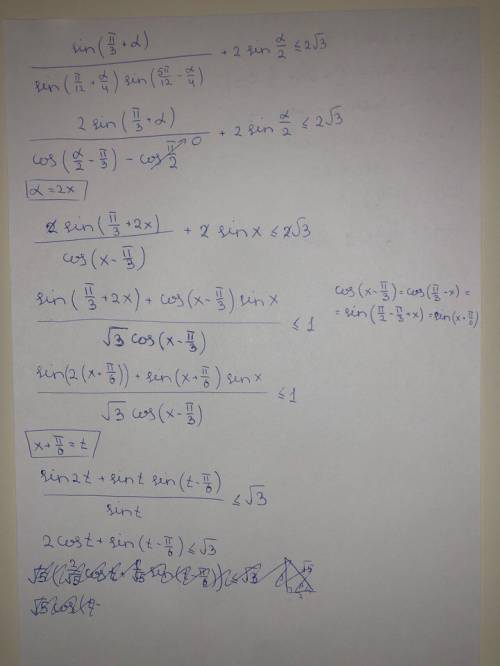 sin(π/3 + α) / (sin(π/12 + α/4) sin(5π/12 - α/4)) + 2 sin α/2 ≤ 2√3
2 sin(π/3 + α) / (cos(α/2 - π/3) - cos π/2) + 2 sin α/2 ≤ 2√3
0
α = 2x
2 sin(π/3 + 2x) / cos(x - π/3) + 2 sin x ≤ 2√3
(sin(π/3 + 2x) + cos(x - π/3) sin x) / (√3 cos(x - π/3)) ≤ 1
cos(x - π/3) = cos(π/3 - x) =
= sin(π/2 - π/3 + x) = sin(x + π/6)
(sin(2(x + π/6)) + sin(x + π/6) sin x) / (√3 cos(x - π/3)) ≤ 1
x + π/6 = t
(sin 2t + sin t sin(t - π/6)) / sin t ≤ √3
2 cos t + sin(t - π/6) ≤ √3